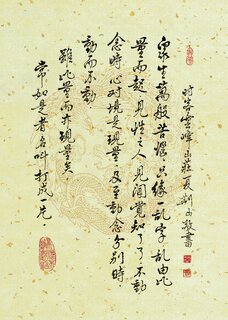 眾生萬般苦惱只緣一亂字亂由比
量而起見性之人見聞覺知了了不動
念時心對境是現量及至動念分別時
動而不動
雖比量而亦現量矣
常如是者名叫打成一片.
時客雲峰山莊一夏
敬書